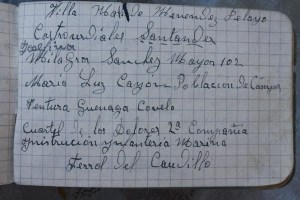 Villa María de Menendez Pelayo
Castrourdiales Santander
Josefina
Milagros Sanchez Mayor 102
Maria Luz Casson Poblacion de Campos
Ventura Guenaga Covelo
Cuartel de los Dolores 2ª Compañia
Instruccion Infanteria Marina
Ferrol del Caudillo